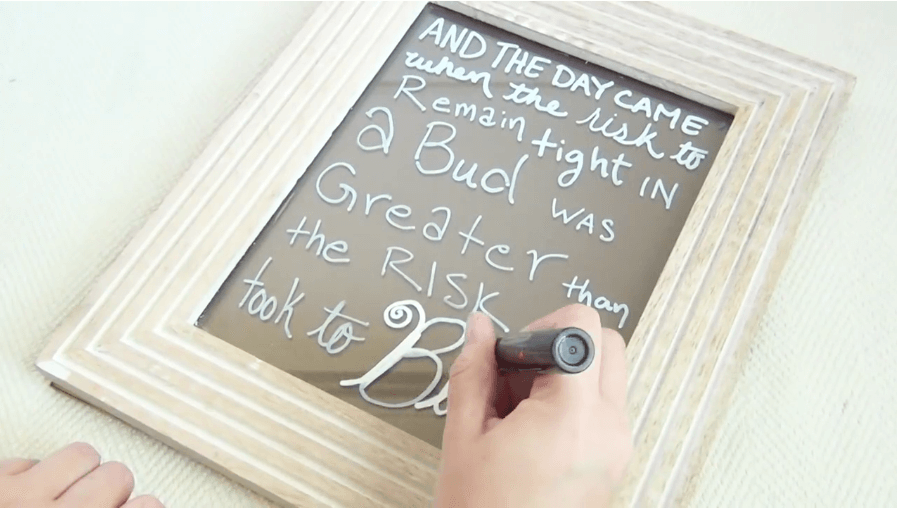 AND THE DAY CAME
when the risk to
Remain tight IN
a Bud WAS
Greater than
the RISK
took to